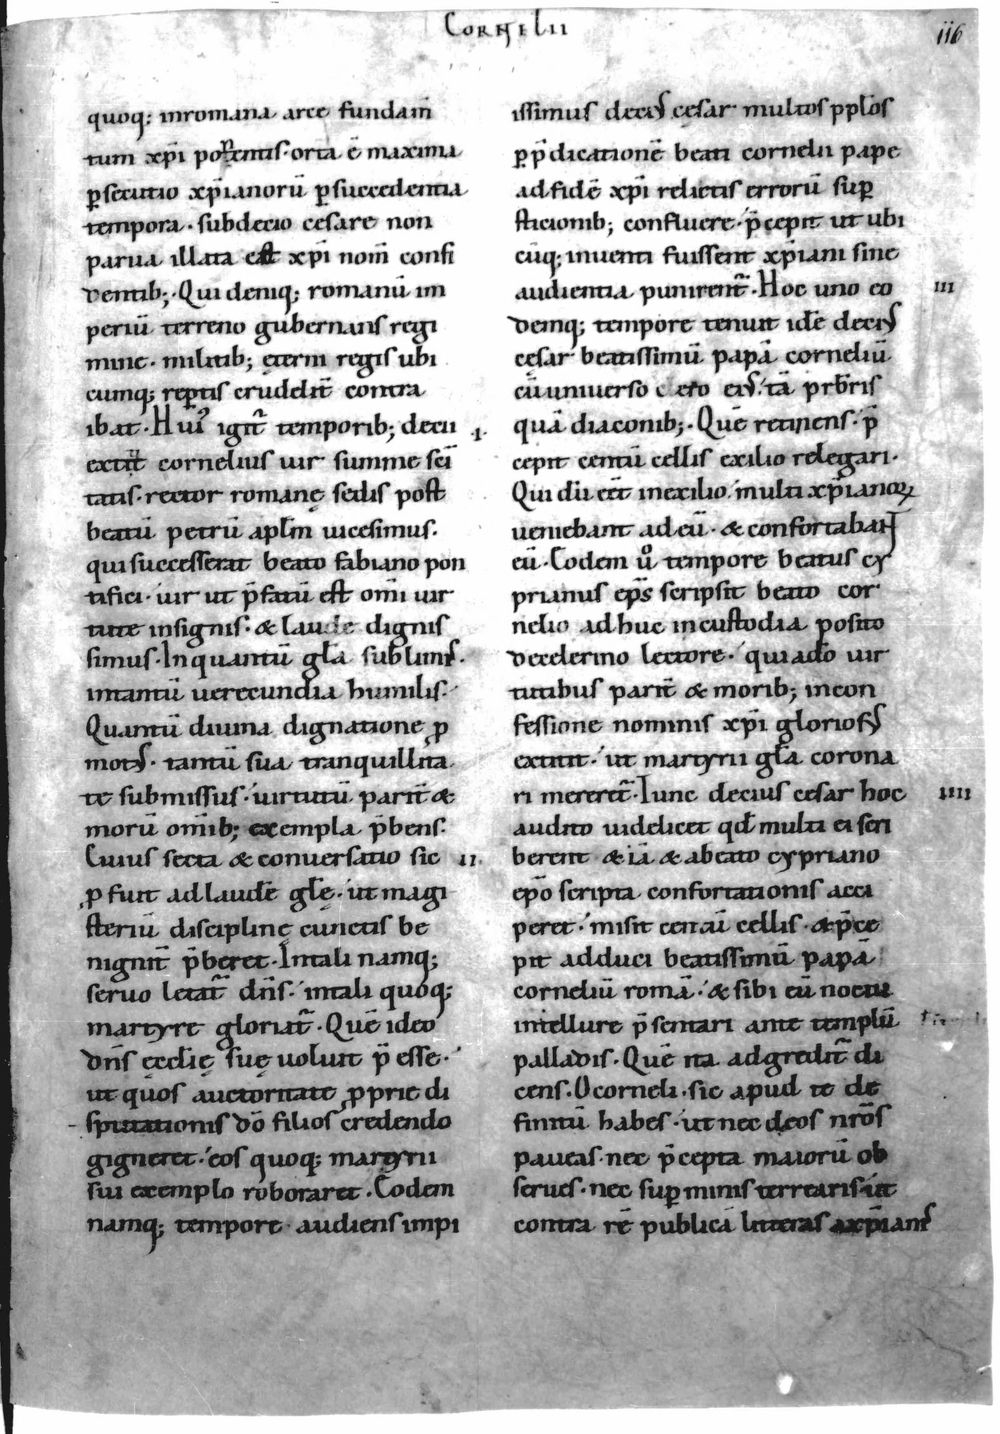 CORNELII
116
quoq; inromana arce fundam̄
tum xp̄i potentis· orta ē maxima
ꝑsecutio xp̄ianorū ꝑsuccedentia
tempora· subdecio cesare non
parua illata est xp̄i nom̄ confi
dentib;· Qui deniq; romanū im
periū terreno gubernans regi
mine· militib; ęterni regis ubi
cumq; reptis crudelit̄ contra
ibat· Hui᾽ igit̄ temporib; decii
I·
extitit cornelius uir summe sc̄i
tatis· rector romanę sedis post
beatū petrū apl̄m uicesimus·
qui successerat beato fabiano pon
tifici· uir ut p̄fatū est om̄i uir
tute insignis· & laude dignis
simus· Inquantū gl̄a sublimis·
intantū uerecundia humilis·
Quantū diuina dignatione ꝓ
mot᾽· tantū sua tranquillita
te submissus· uirtutū parit̄ &
morū om̄ib; exempla p̄bens·
Cuius secta & conuersatio sic
II·
ꝓfuit adlaudē gl̄ę· ut magi
steriū disciplinę cunctis be
nignit̄ p̄beret· Intali namq;
seruo letat̄ dn̄s· intali quoq;
martyre gloriat̄· Quē ideo
dn̄s ęcclię suę uoluit p̄esse·
ut quos auctoritate ꝓprie di
sputationis dō filios credendo
gigneret· eos quoq; martyrii
sui exemplo roboraret· Eodem
namq; tempore audiens impi
issimus deci᾽ cęsar multos ppl̄os
ꝑ p̄dicationē beati cornelii pape
adfidē xp̄i relictis errorū suꝑ
sticionib; confluere· p̄cepit ut ubi
cūq; inuenti fuissent xp̄iani sine
audientia punirent̄· Hoc uno eo
III
demq; tempore tenuit idē deci᾽
cęsar beatissimū papā corneliū
cū uniuerso clero ei᾽· tā prb̄ris
quā diaconib;· Quē retinens· p̄
cepit centū cellis exilio relegari·
Qui dū eēt inexilio· multi xp̄ianoꝝ
ueniebant adeū· & confortabant
eū· Eodem ů tempore beatus cy
prianus ep̄s scripsit beato cor
nelio adhuc incustodia posito
decelerino lectore· quiado uir
tutibus parit̄ & morib; incon
fessione nominis xp̄i glorios᾽
extitit· ut martyrii gl̄a corona
ri mereret̄· Tunc decius cesar hoc
IIII
audito uidelicet qd̄ multi ei scri
berent & iā & abeato cypriano
ep̄o scripta confortationis acci
peret· misit centū cellis· & p̄ce
pit adduci beatissimū papā
corneliū romā· & sibi eū noctu
intellure p̄sentari ante templū
palladis· Quē ita adgredit̄ di
cens· O corneli· sic apud te de
finitū habes· ut nec deos nr̄os
paueas· nec p̄cepta maiorū ob
serues· nec suꝑ minis terrearis· ut
contra rē publicā litteras axp̄ianis